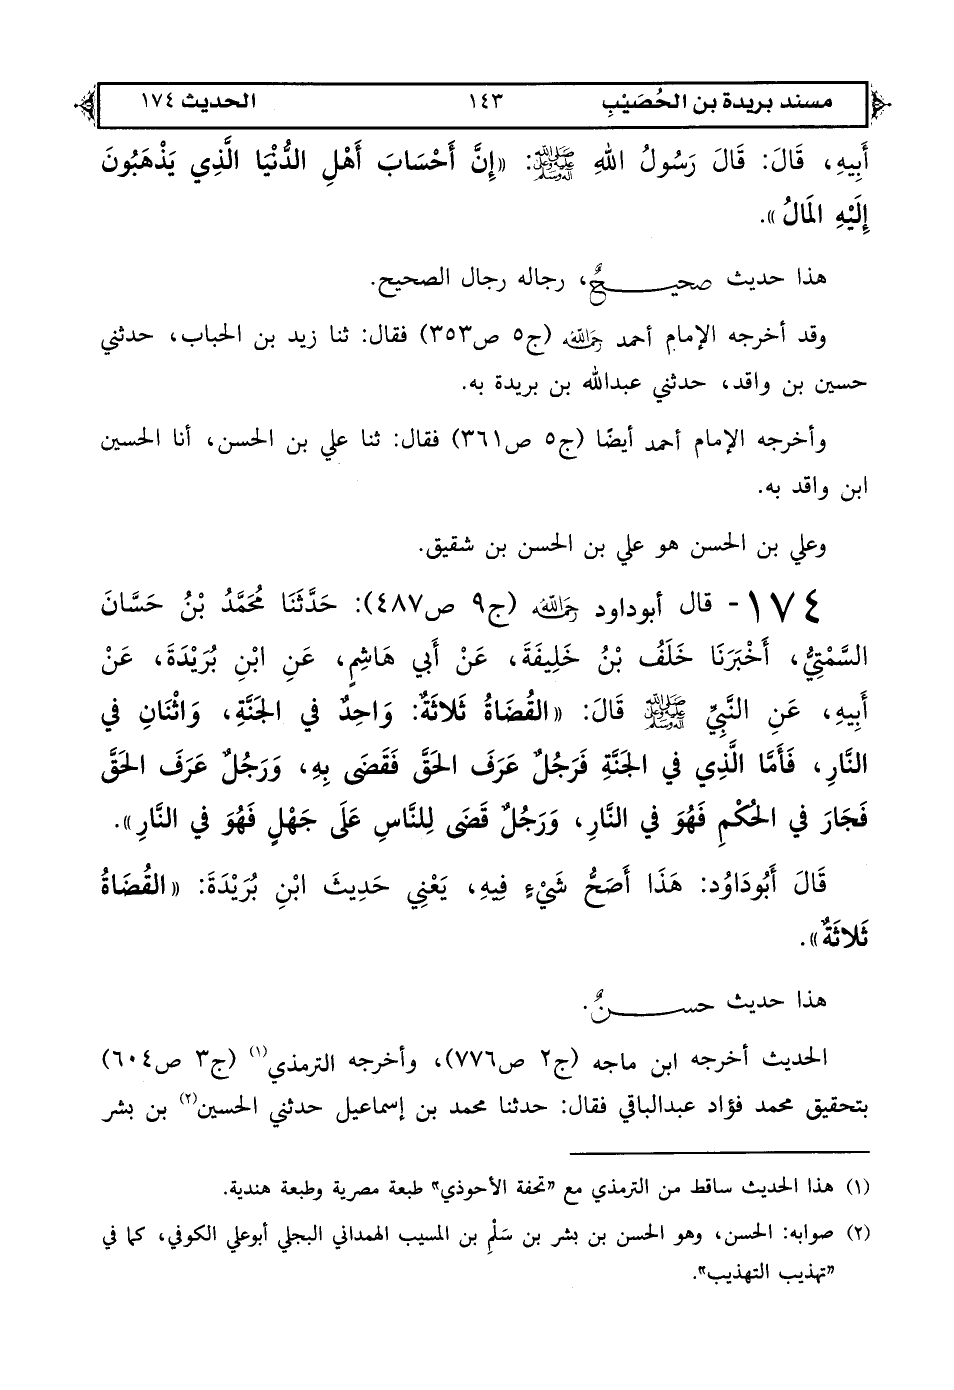 مسند بريدة بن الحُصَيْبِ ١٤٣ الحديث ١٧٤
أَبِيهِ، قَالَ: قَالَ رَسُولُ اللهِ ﷺ: «إِنَّ أَحْسَابَ أَهْلِ الدُّنْيَا الَّذِي يَذْهَبُونَ
إِلَيْهِ المَالُ».
هذا حديث صحيحٌ، رجاله رجال الصحيح.
وقد أخرجه الإمام أحمد رحمه الله (ج٥ ص٣٥٣) فقال: ثنا زيد بن الحباب، حدثني
حسين بن واقد، حدثني عبدالله بن بريدة به.
وأخرجه الإمام أحمد أيضًا (ج٥ ص٣٦١) فقال: ثنا علي بن الحسن، أنا الحسين
ابن واقد به.
وعلي بن الحسن هو علي بن الحسن بن شقيق.
١٧٤- قال أبوداود رحمه الله (ج٩ ص٤٨٧): حَدَّثَنَا مُحَمَّدُ بْنُ حَسَّانَ
السَّمْتِيُّ، أَخْبَرَنَا خَلَفُ بْنُ خَلِيفَةَ، عَنْ أَبِي هَاشِمٍ، عَنِ ابْنِ بُرَيْدَةَ، عَنْ
أَبِيهِ، عَنِ النَّبِيِّ ﷺ قَالَ: «القُضَاةُ ثَلاثَةٌ: وَاحِدٌ فِي الجَنَّةِ، وَاثْنَانِ فِي
النَّارِ، فَأَمَّا الَّذِي فِي الجَنَّةِ فَرَجُلٌ عَرَفَ الحَقَّ فَقَضَى بِهِ، وَرَجُلٌ عَرَفَ الحَقَّ
فَجَارَ فِي الحُكْمِ فَهُوَ فِي النَّارِ، وَرَجُلٌ قَضَى لِلنَّاسِ عَلَى جَهْلٍ فَهُوَ فِي النَّارِ».
قَالَ أَبُودَاوُد: هَذَا أَصَحُّ شَيْءٍ فِيهِ، يَعْنِي حَدِيثَ ابْنِ بُرَيْدَةَ: «القُضَاةُ
ثَلاثَةٌ».
هذا حديث حسنٌ.
الحديث أخرجه ابن ماجه (ج٢ ص٧٧٦)، وأخرجه الترمذي(١) (ج٣ ص٦٠٤)
بتحقيق محمد فؤاد عبدالباقي فقال: حدثنا محمد بن إسماعيل حدثني الحسين(٢) بن بشر
(١) هذا الحديث ساقط من الترمذي مع "تحفة الأحوذي" طبعة مصرية وطبعة هندية.
(٢) صوابه: الحسن، وهو الحسن بن بشر بن سَلْمِ بن المسيب الهمداني البجلي أبوعلي الكوفي، كما في
"تهذيب التهذيب".